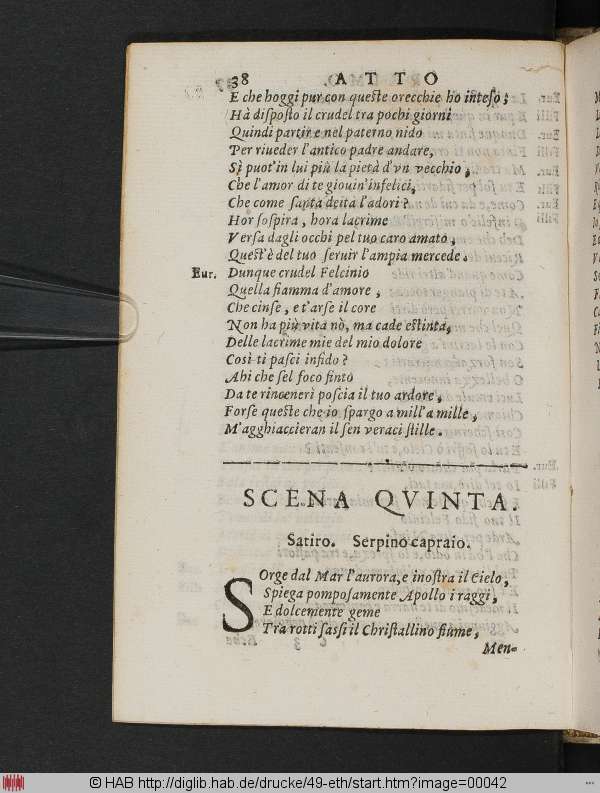 38 ATTO
E che hoggi pur con queſte orecchie ho inteſo;
Hà diſpoſto il crudel tra pochi giorni
Quindi partir e nel paterno nido
Per riueder l'antico padre andare,
Sì puot'in lui più la pietà d'vn vecchio,
Che l'amor di te giouin'infelici,
Che come ſanta deità l'adori?
Hor ſoſpira, hora lacrime
Verſa dagli occhi pel tuo caro amato,
Queſt'è del tuo ſeruir l'ampia mercede.
Eur. Dunque crudel Felcinio
Quella fiamma d'amore,
Che cinſe, e t'arſe il core
Non ha più vita nò, ma cade eſtinta,
Delle lacrime mie del mio dolore
Così ti paſci infido?
Ahi che ſel foco finto
Da te rinceneri poſcia il tuo ardore,
Forſe queſte che io ſpargo a mill'a mille,
M'agghiaccieran il ſen veraci ſtille.
SCENA QVINTA.
Satiro. Serpino capraio.
SOrge dal Mar l'aurora, e inoſtra il Cielo,
Spiega pompoſamente Apollo i raggi,
E dolcemente geme
Tra rotti ſaſſi il Chriſtallino fiume,
Men-
© HAB http://diglib.hab.de/drucke/49-eth/start.htm?image=00042